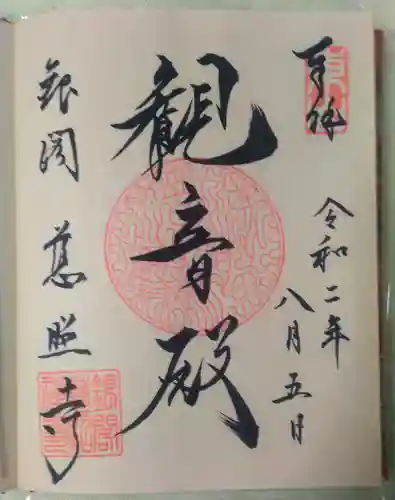 奉拝
令和二年
八月五日
観音殿
銀閣 慈照寺